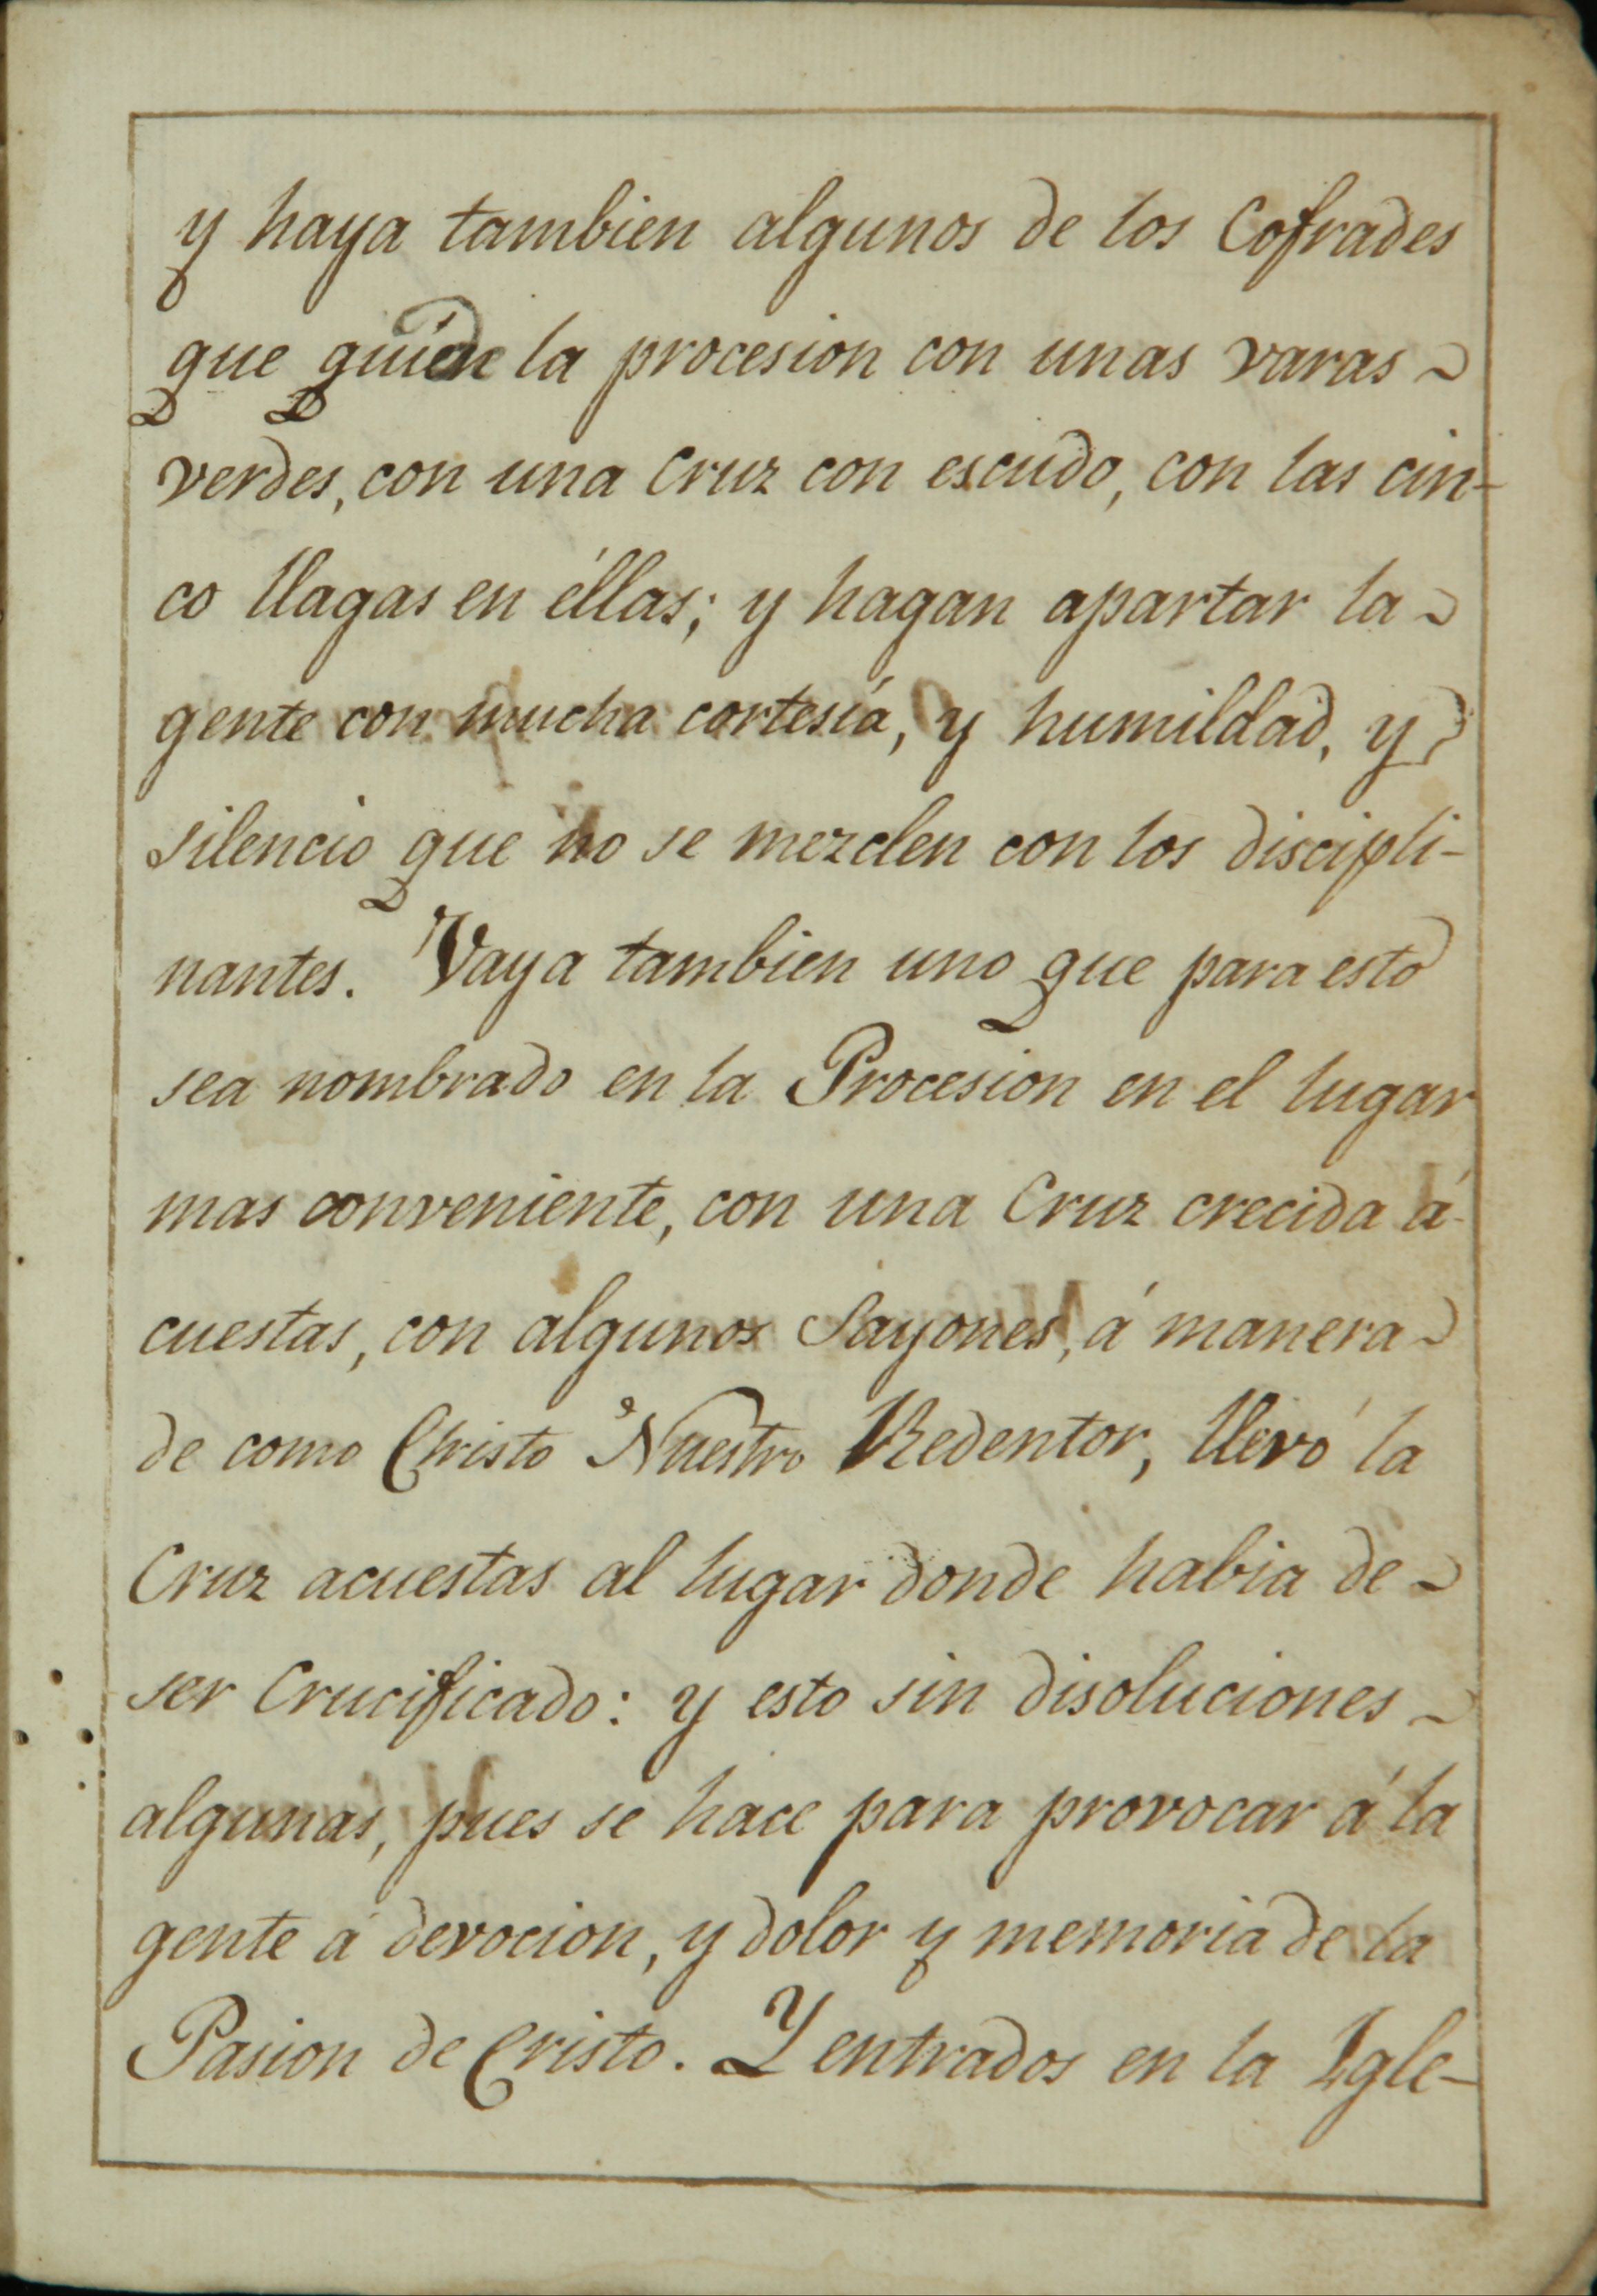 y haya tambien algunos de los Cofrades
que guien la procesion con unas varas
verdes, con una Cruz con escudo, con las cin-
co llagas en éllas; y hagan apartar la
gente con mucha cortesía, y humildad, y
silencio que no se mezclen con los discipli-
nantes. Vaya tambien uno que para esto
sea nombrado en la Procesion en el lugar
mas conveniente, con una Cruz crecida á
cuestas, con algunos Sayones, á manera
de como Christo Nuestro Redentor, llevó la
Cruz acuestas al lugar donde habia de
ser Crucificado: y esto sin disoluciones
algunas, pues se hace para provocar á la
gente á devocion, y dolor y memoria de la
Pasion de Cristo. Y entrados en la Igle-